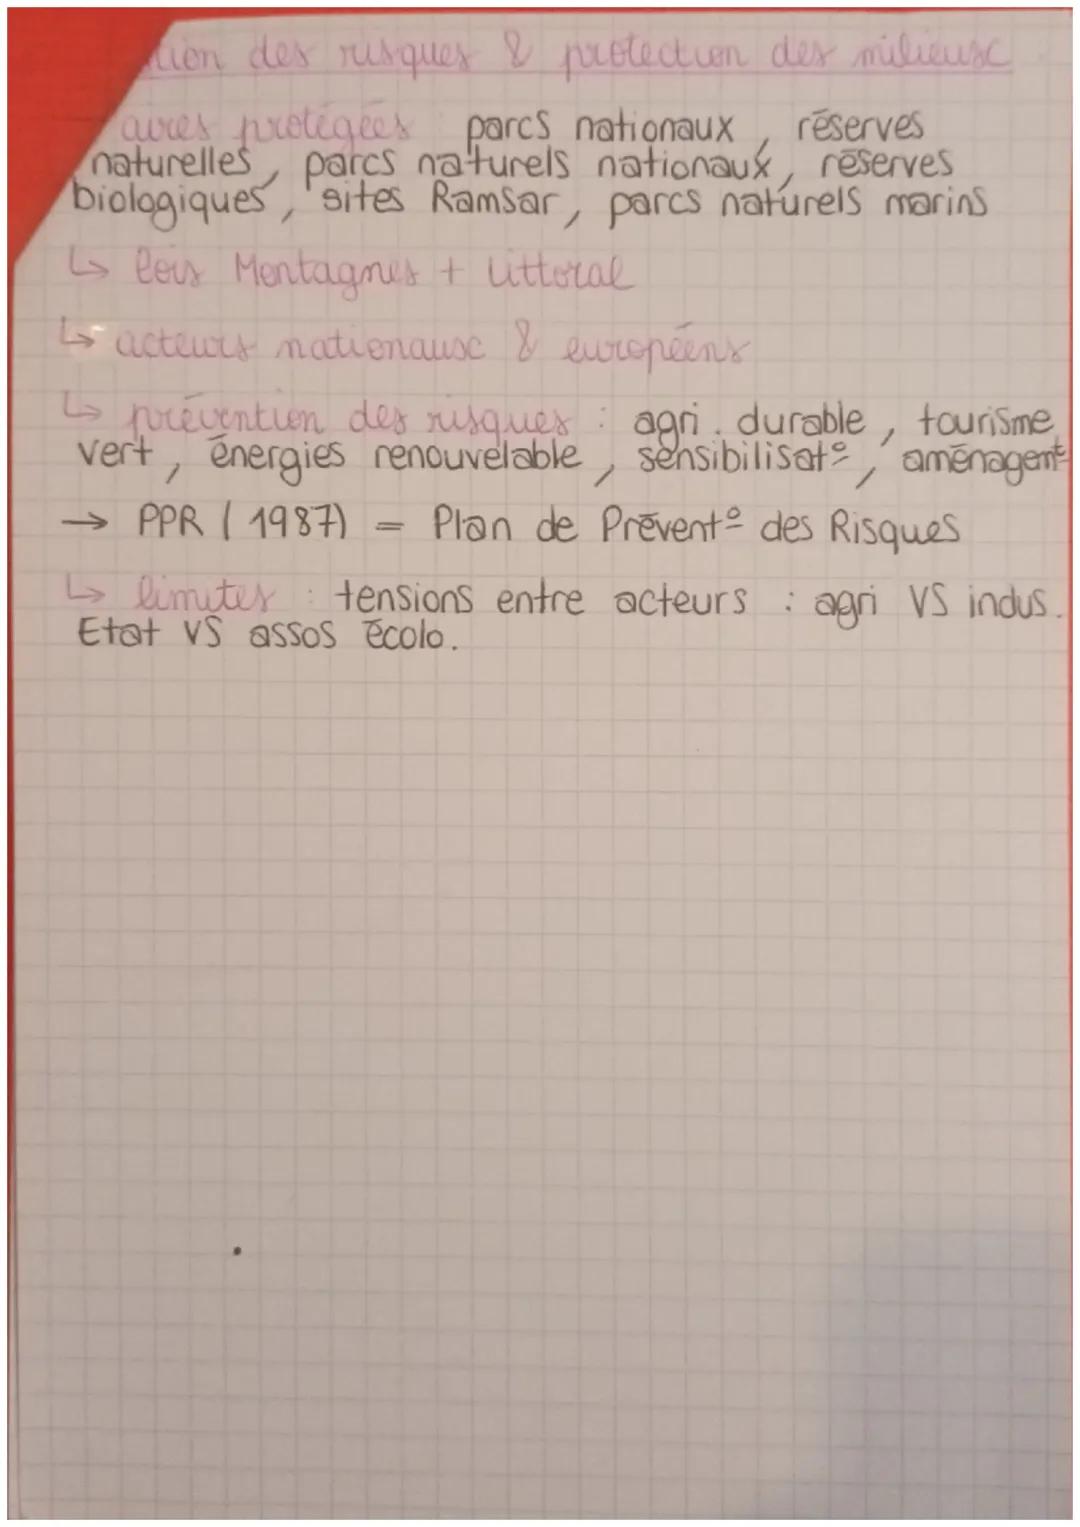 tion des risques & protection des milieux
aires protégées parcs nationaux, réserves
naturelles, parcs naturels nationaux, réserves
biologiques, sites Ramsar, parcs naturels marins
↳ lois Montagnes + littoral
↳ acteurs nationaux & européens
↳ prévention des risques : agri. durable, tourisme
vert, énergies renouvelable, sensibilisat°, aménagemt
→ PPR (1987) = Plan de Prévent° des Risques
↳ limites : tensions entre acteurs : agri VS indus.
Etat VS assos écolo.